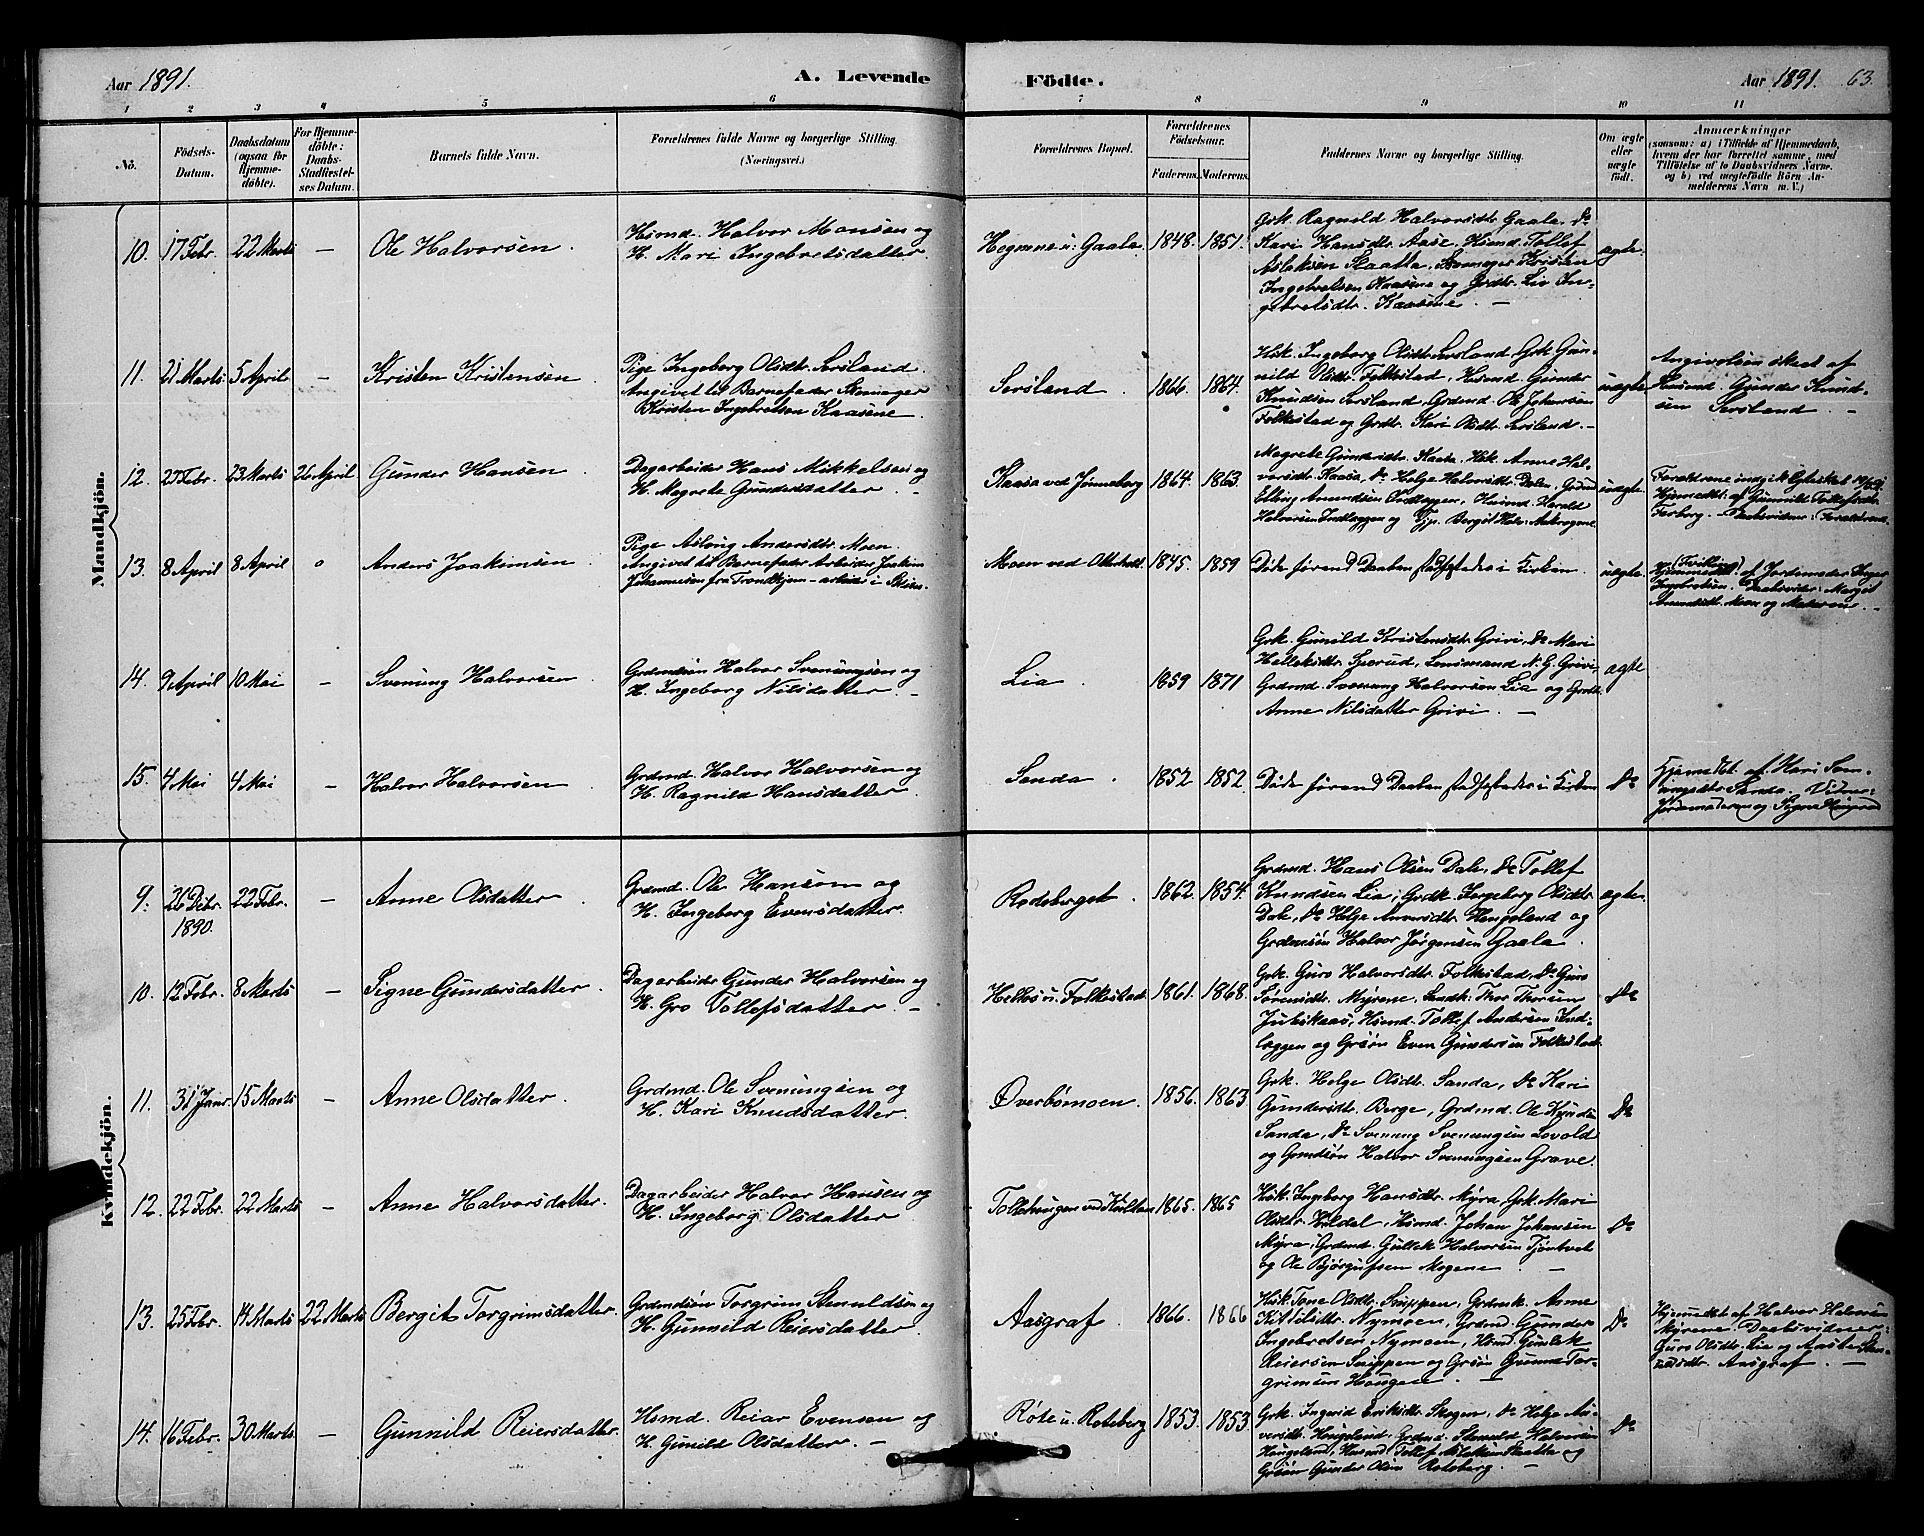 Aar 1891.
A. Levende Födte.
Aar 1891. 63.
1 2 3 4 5 6 7 8 9 10 11
No.
Födsels-
Datum.
Daabsdatum
(ogsaa for
Hjemme-
döbte).
For Hjemme-
döbte:
Daabs-
Stadfæstel-
ses Datum.
Barnets fulde Navn.
Forældrenes fulde Navne og borgerlige Stilling
(Næringsvei.)
Forældrenes Bopæl.
Forældrenes
Födselsaar.
Faderens. Moderens.
Faddernes Navne og borgerlige Stilling.
Om ægte
eller
uægte
födt.
Anmærkninger
(saasom: a) i Tilfælde af Hjemmedaab,
hvem der har forrettet samme, med
Tilföielse af to Daabsvidners Navne,
og b) ved uægtefödte Börn An-
melderens Navn m. V.)
Mandkjön.
10. 17 Febr. 22 Marts – Ole Halvorsen.
Husmd. Halvor Monsen og
H. Mari Ingebretsdatter.
Hegrene u. Gaala. 1848. 1851.
Grk. Ragnild Halvorsdtr. Gaala, Do
Kari Hansdtr. Aase, Husmd. Tollef
Aslaksen Slaatta, Stenager Kristen
Ingebretsen Kaasene og Grdtr. Liv In-
gebretsdtr. Kaasene. –
ægte.
11. 21 Marts 5 April – Kristen Kristensen.
Pige Ingeborg Olsdtr. Sersland.
Angivet til Barnefader Stenager
Kristen Ingebretsen Kaasene.
Sersland. 1866. 1864.
Hsk. Ingeborg Olsdtr. Sersland, Grk. Gun-
nild Olsdtr. Folkestad, Husmd. Gunder
Knudsen Sersland, Grdmd. Ole Johansen
Folkestad og Grdtr. Kari Olsdtr. Sersland. –
uægte
Angivelsen skeet af
Husmd. Gunder Knud-
sen Sersland. –
12. 27 Febr. 23 Marts 26 April Gunder Hansen.
Dagarbeider Hans Mikkelsen og
H. Megrete Gundersdatter. –
Kaasa ved Jønneberg 1864. 1863.
Megrete Gundersdtr. Kaasa, Hsk. Anne Hal-
vorsdtr. Kaasa, Do Helge Halvorsdtr. Dalen,
Elling Amundsen Indlaggen, Husmd. Harald
Halvorsen Indlaggen og
uægte.
Forældrene indgik Egteskab
Hjemmedbt. af Gunnild Tollefsdtr.
Forberg. Daabsvidner: Forældrene.
13. 8 April 8 April o Anders Joakimsen
Pige Aslaug Andersdtr. Moen
Angivet til Barnefader Arbeider Joakim
Johannesen fra Trondhjem – arbeid. i Skien.
Moen ved Otterholt. 1845. 1859
Døde førend Daaben stadfæstedes i Kirken.
uægte
(Tvilling)
Hjemmedbt. af Jordemoder
Ingebretsen. Daabsvidner: Margit
Amundsdtr. Moen og Moderen. –
14. 9 April 10 Mai – Svenung Halvorsen.
Grdmdsön Halvor Svenungsen og
H. Ingeborg Nilsdatter –
Lia. 1859 1871
Grk. Gunild Kristensdtr. Grivi, Do Mari
Halleksdtr. Sjerud, Lensmand N. G. Grivi,
Grdmd. Svenung Halvorsen Lia og Grdtr.
Anne Nilsdatter Grivi. –
ægte
15. 4 Mai 4 Mai – Halvor Halvorsen
Grdmd. Halvor Halvorsen og
H. Ragnild Hansdatter.
Sanda. 1852 1852.
Døde førend Daaben stadfæstedes i Kirken
Do
Hjemmedbt. af Kari Sven-
ungsdtr. Sanda. Vidner:
Jordemoderen og Signe Haugerud
Kvindekjön.
9. 26 Debr. 22 Febr. – Anne Olsdatter.
1890.
Grdmd. Ole Hanson og
H. Ingeborg Evensdatter.
Rodeberget. 1862. 1854.
Grdmd. Hans Olsen Dale, Do Tollef
Knudsen Lia, Grdk. Ingeborg Olsdtr.
Dale, Do Helge Anversdtr. Hengeland og
Grdmsön Halvor Jørgensen Gaala.
ægte.
10. 12 Febr. 8 Marts – Signe Gundersdatter.
Dagarbeider Gunder Halvorsen og
H. Gro Tollefsdatter. –
Helles u. Folkestad. 1861. 1868.
Grk. Guro Halvorsdtr. Folkestad, Do Guro
Sörensdtr. Myrene, Sandk. Thor Thorsen
Juliskaas, Husmd. Tollef Andersen Ind-
laggen og Grsön Even Gundersen Folkestad.
Do
11. 31 Janr. 15 Marts – Anne Olsdatter.
Grdmd. Ole Svenungsen og
H. Kari Knudsdatter.
Øverbømoen. 1856. 1863
Grk. Helge Olsdtr. Sanda, Do Kari
Gundersdtr. Berge, Grdmd. Ole Knuds.
Sanda, Do Svenung Svenungsen Lovold
og Grmdsön Halvor Svenungsen Grave.
Do
12. 22 Febr. 22 Marts – Anne Halvorsdatter.
Dagarbeider Halvor Hansen og
H. Ingeborg Olsdatter
Tollehaugen ved Kviltan 1865. 1865
Hsk. Ingeborg Hansdtr. Myra, Grk. Mari
Olsdtr. Hvildal, Husmd. Johan Johansen
Myra, Grdmd. Gullek Halvorsen Tjöntvet
og Ole Bjørgufsen Mogene. –
Do
13. 25 Febr. 14 Marts 22 Marts Bergit Torgrimsdatter.
Grdmdsön Torgrim Stenuldsen og
H. Gunnild Reiersdatter.
Aasgraf. 1866. 1866
Hsk. Tone Olsdtr. Snippen, Grdmk. Anne
Kittilsdtr. Nymoen, Grdmd. Gunder
Ingebretsen Nymoen, Husmd. Gunlek
Reiersen Snippen og Grsön Gunnar Tor-
grimsen Haugene. –
Do
Hjemmedbt af Halvor Halvorsen
Myrene. Daabsvidner:
Guro Olsdtr. Lia og Aaste Ste-
nuldsdtr. Aasgraf. –
14. 16 Febr. 30 Marts – Gunnild Reiersdatter.
Husmd. Reiar Evensen og
H. Gunild Olsdatter. –
Røte u. Roteberg 1853. 1853.
Grk. Ingerid Eriksdtr. Skogen, Do Helge An-
versdtr. Hengeland, Grdmd. Stenuld Halvorsen
Hengeland, Husmd. Tollef Aslaksen Slaatta og
Grsön Gunder Olsen Roteberg. –
Do